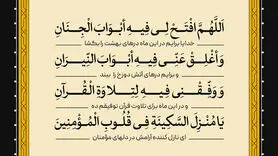 اَللّٰهُمَّ افْتَحْ لِى فِيهِ أَبْوَابَ الْجِنَانِ
خدایا برایم در این ماه درهای بهشت را بگشا
وَأَغْلِقْ عَنِّى فِيهِ أَبْوَابَ النِّيرَانِ
و برایم درهای آتش دوزخ را ببند
وَوَفِّقْنِى فِيهِ لِتِلاوَةِ الْقُرْآنِ
و در این ماه برای تلاوت قرآن توفیقم ده
يَا مُنْزِلَ السَّكِينَةِ فِى قُلُوبِ الْمُؤْمِنِينَ
ای نازل کننده آرامش در دلهای مؤمنان